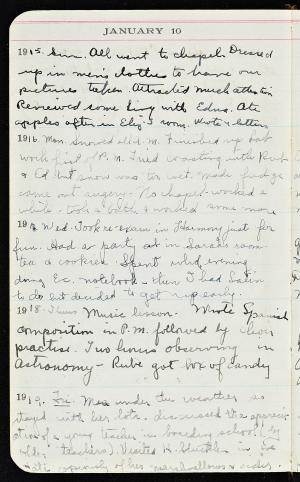 JANUARY 10
1915. Sun. All went to chapel. Dressed
up in men's clothes to have our
pictures taken. Attracted much attention
Reviewed some Eng with Edna. Ate
apples after in Eliz's room. Wrote letters
1916. Mon. Snowed
work first of P.M. Tried coasting with Ruth
& Ed but snow was too wet. Made fudge
came out sugary. No chapel worked a
while. took a bath & worked some more
191 Wed. Took re-exam in Harmony just for
fun. Had a party out in Sarah's room
tea & cookies. Spent whole evening
doing Ec. notebook - then I had Latin
to do but decided to get up early.
1918. Thurs Music lesson. Wrote Spanish
composition in P.M. followed by choir
practise. Two hours observing in
Astronomy - Rube got box of candy
191 Fri. under the weather so
stayed with her lots. discussed the
of a young teacher in boarding school (by
older teachers). Visited H. in
marshmallows & cider.